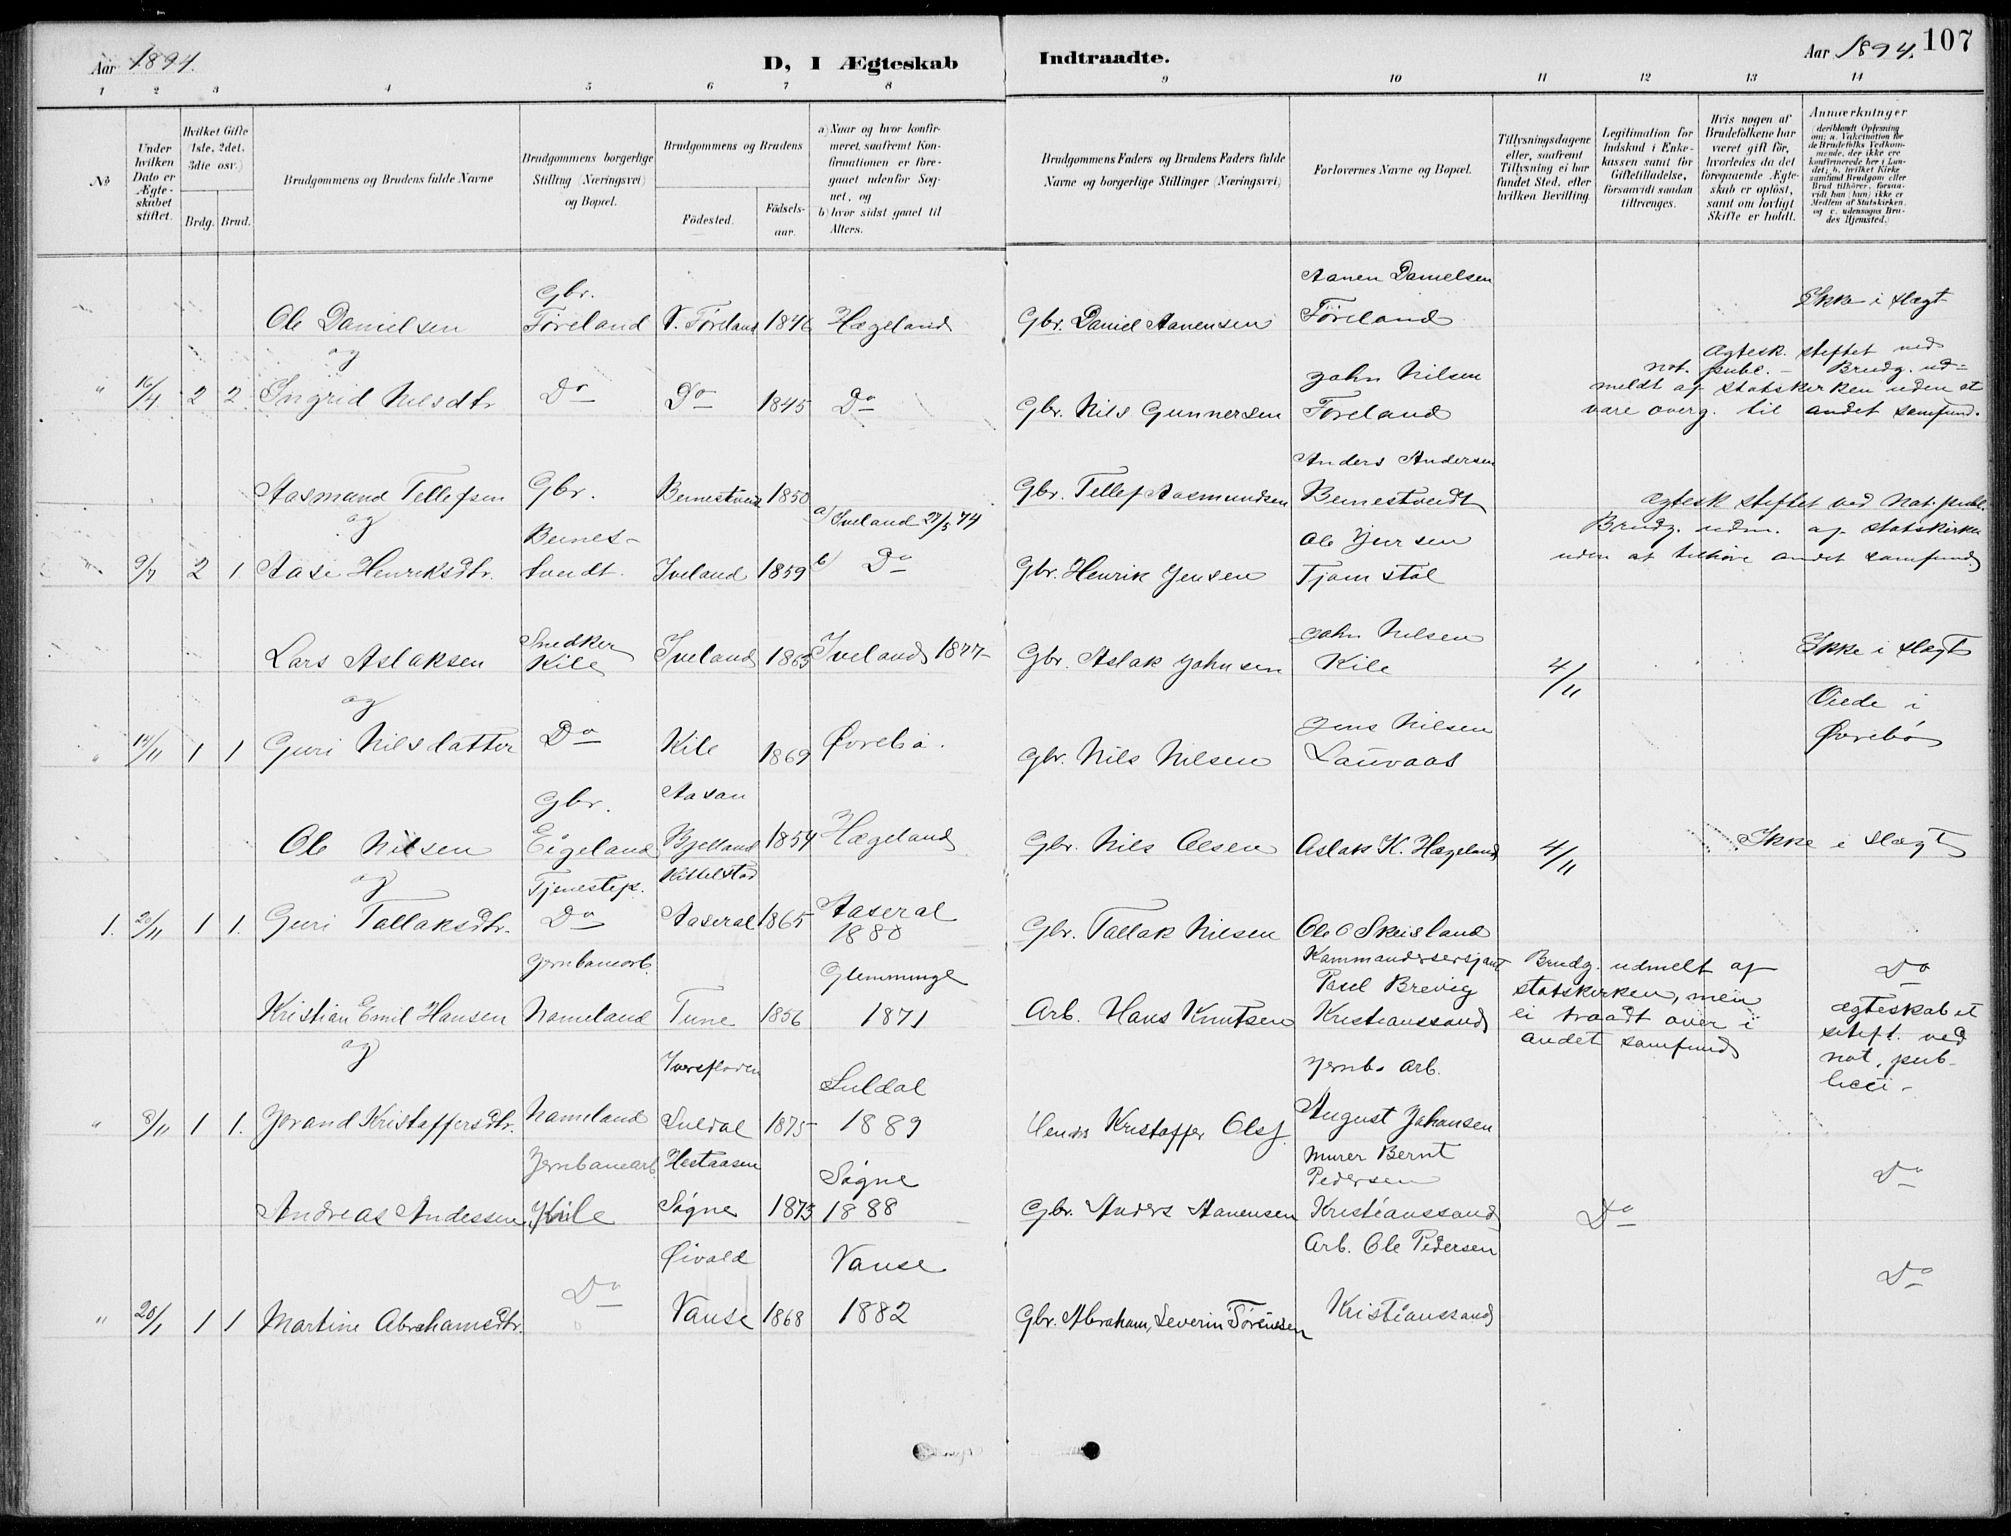 Aar 1894.
D, I Ægteskab Indtraadte.
Aar 1894.
107
1 2 3 4 5 6 7 8 9 10 11 12 13 14
No
Under hvilken Dato er Ægteskabet stiftet.
Hvilket Gifte (1ste, 2det, 3die osv.)
Brdg. Brud.
Brudgommens og Brudens fulde Navne
Brudgommens borgerlige Stilling (Næringsvei) og Bopæl.
Brudgommens og Brudens
Födested.
Födselsaar.
a) Naar og hvor konfirmeret, saafremt Konfirmationen er foregaaet udenfor Sognet, og
b) hvor sidst gaaet til Alters.
Brudgommens Faders og Brudens Faders fulde Navne og borgerlige Stillinger (Næringsvei)
Forlovernes Navne og Bopæl.
Tillysningsdagene eller, saafremt Tillysning ei har fundet Sted, efter hvilken Bevilling.
Legitimation for Indskud i Enkekassen samt for Giftetilladelse, forsaavidt saadan tiltrænges.
Hvis nogen af Brudefolkene har været gift för, hvorledes da det foregaaende Ægteskab er oplöst, samt om lovligt Skifte er holdt.
Anmærkninger (deriblandt Oplysning om; a. Vakcination for de Brudefolks Vedkommende, der ikke ere konfirmerede her i Landet; b. hvilket Kirkesamfund Brudgom eller Brud tilhörer, forsaavidt han (hun) ikke er Medlem af Statskirken, og c. udensogns Brudes Hjemsted.)
Ole Danielsen Gbr. Föreland V. Föreland 1846 Hægeland Gbr. Daniel Aanensen Aanen Danielsen Föreland Ikke i slægt
og
" 16/4 2 2 Ingrid Nilsdtr Do Do 1845 Do Gbr. Nils Gunnersen John Nilsen Föreland
Ægtesk. stiftet ved
not. publ. - Brudg. ud-
meldt af statskirken uden at
være overg. til andet samfund.
Aasmund Tellefsen Gbr. 1850 Gbr. Tellef Aasmundsen Anders Andersen
og
9/7 2 1. Aase Henriksdtr. Iveland 1859 a) Iveland 27/5 74 b) Do Gbr. Henrik Jensen Ole Jensen Tjomstöl
Ægtesk stiftet ved Not. publ.
Brudg. udm. af statskirken
uden at tilhöre andet samfund
Lars Aslaksen Snedker Kile Iveland 1865 Iveland 1877 Gbr. Aslak Johnsen John Nilsen Kile 4/11 Ikke i slægt
og
" 14/11 1 1 Guri Nilsdatter Do Kile 1869 Övrebö. Gbr. Nils Nilsen Jens Nilsen Lauvaas
Viede i
Övrebö
Ole Nilsen Gbr. Eigeland Aasan Bjelland 1854 Hægeland Gbr. Nils Olsen Aslak K. Hægeland 4/11 Ikke i slægt
og
1. 20/11 1 1. Guri Tallaksdtr. Tjenestep. Do Kittelstad Aaseral 1865 Aaseral 1880 Gbr. Tallak Nilsen Ole O Skeisland
Kristian Emil Hansen Jernbanearb. Nomeland Tune 1856 Glemminge 1871 Arb. Hans Knutsen Kommandersersjant Paul Brevig Kristianssand
Brudg. udmelt af
statskirken, men
ei traadt over i
andet samfund
Do
ægteskabet
stift. ved
not. pub-
licei -
og
" 8/11 1 1. Jorand Kristoffersdtr. Nomeland Suldal 1875 Suldal 1889 Kristoffer Olsf. Jernb. Arb. August Johansen
Andreas Andessen Jernbanearb. Kile Hestaasen Søgne 1873 Søgne 1888 Gbr. Anders Aanensen Murer Bernt Pedersen Kristianssand Do Do
" 20/1 1 1 Martine Abrahamsdtr. Do Öivold Vanse 1868 Vanse 1882 Gbr. Abraham Severin Törinsen Arb. Ole Pedersen Kristianssand Do